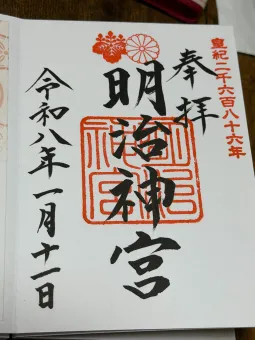 皇紀二千六百八十六年
奉拝
明治神宮
令和八年一月十一日